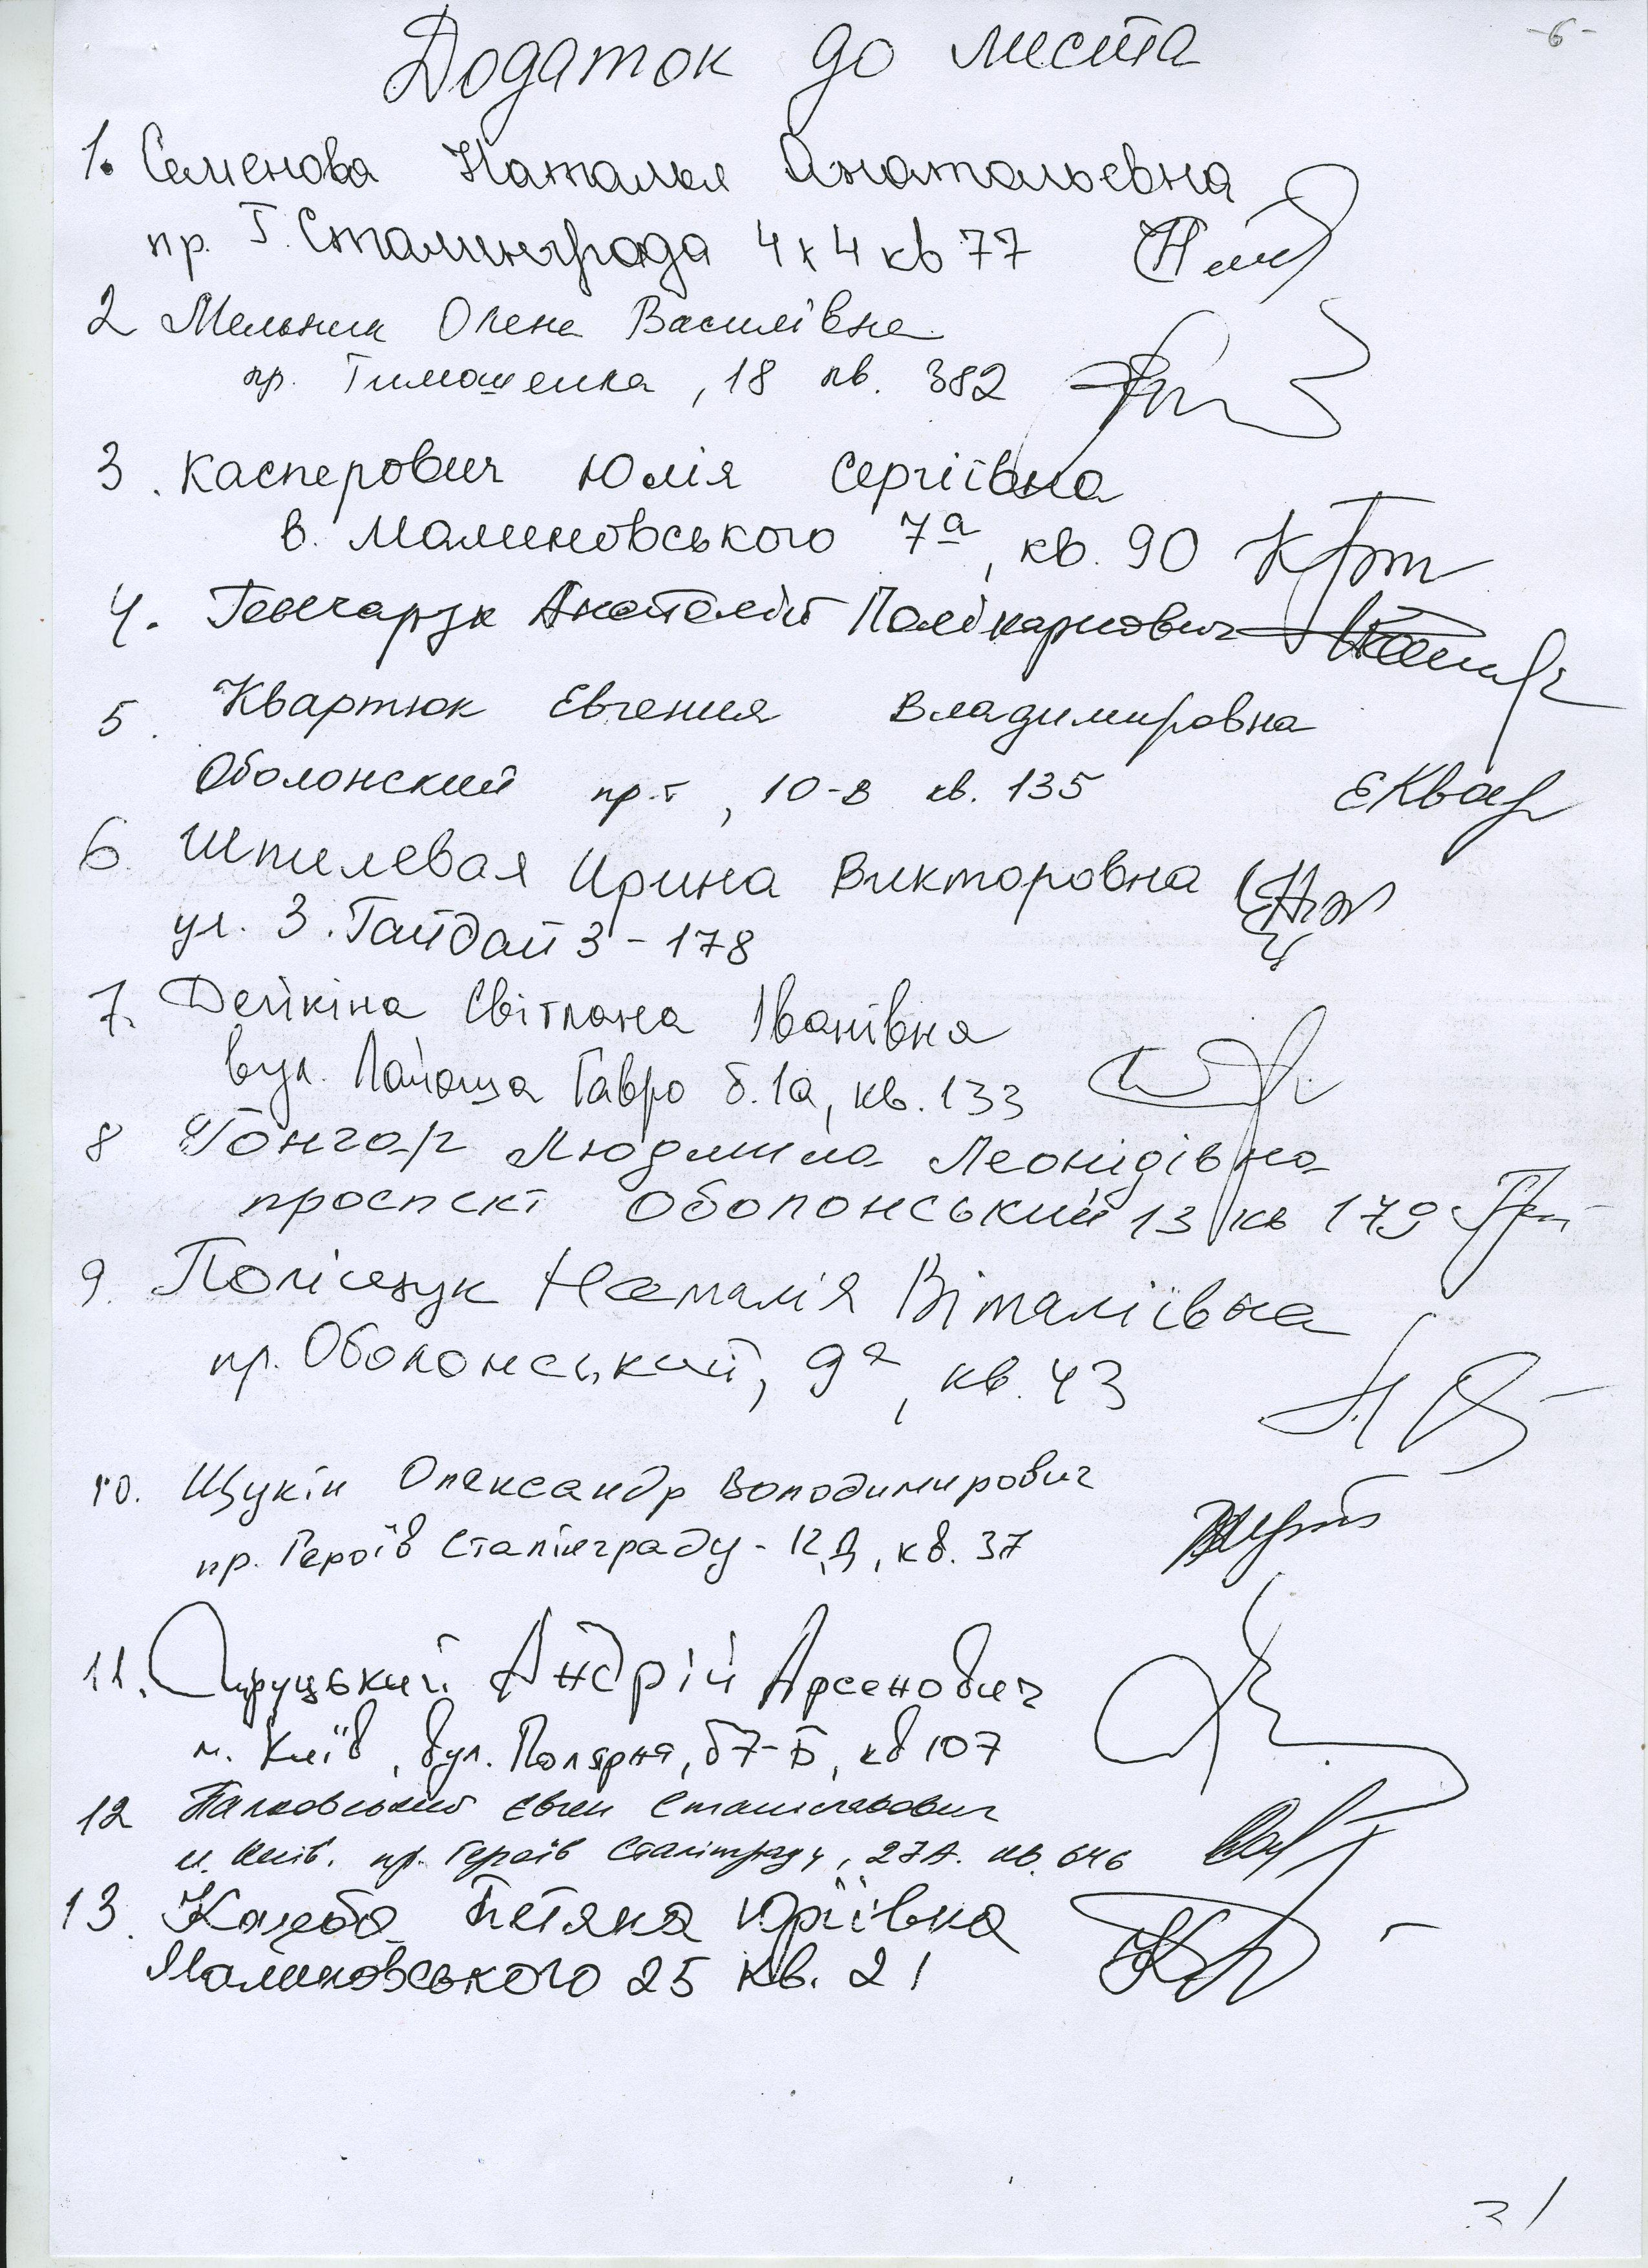 -6-
Додаток до листа
1. Семенова Наталья Анатольевна
пр. Г. Сталинграда 4 к 4 кв 77
2 Мельник Олена Василівна
пр. Тимошенка, 18 кв. 382
3. Касперович Юлія Сергіївна
в. Малиновського 7а, кв. 90
4. Гончарук Анатолій Полікарпович
5. Квартюк Евгения Владимировна
Оболонский пр-т, 10-в кв. 135
ЕКвар
6. Шпилевая Ирина Викторовна
ул. З. Гайдай 3-178
7. Дейкіна Світлана Іванівна
вул. Лайоша Гавро б. 1а, кв. 133
8 Гонгар Людмила Леонідівна
проспект Оболонський 13 кв 179
9. Поліщук Наталія Віталіївна
пр. Оболонський, 9а, кв. 43
10. Щукін Олександр Володимирович
пр. Героїв Сталінграду - 12Д, кв. 37
11. Андрій Арсенович
м. Київ, вул. Полярна, б7-Б, кв 107
12 Євген Станіславович
м. Київ. пр. Героїв Сталінграду, 27А. кв. 646
13. Тетяна Юріївна
Малиновського 25 кв. 21
31